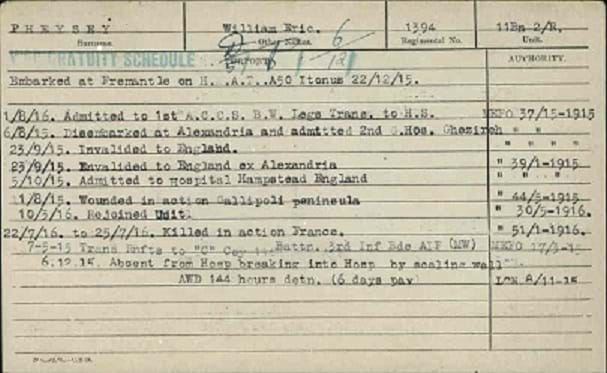 PHEYSEY William Eric. 1394 11Bn 2/R.
Surname. Other Names. Regimental No. Unit.
WAR GRATUITY SCHEDULE 6/12
REPORT. AUTHORITY.
Embarked at Fremantle on H. .A.T..A50 Itonus 22/12/15.
1/8/16. Admitted to 1st A.C.C.S. B.W. Legs Trans. to H.S. MEFO 37/15-1915
6/8/15. Disembarked at Alexandria and admitted 2nd G.Hos. Ghezireh " " "
23/9/15. Invalided to England. " " "
23/9/15. Invalided to England ex Alexandria " 39/1-1915
5/10/15. Admitted to Hospital Hampstead England " " "
1/8/15. Wounded in action Gallipoli peninsula " 44/5-1915
10/5/16. Rejoined Unit. " 30/5-1916.
22/7/16. to 25/7/16. Killed in action France. " 51/1-1916.
7-5-15 Trans Enfts to "C" Coy 11th Battn. 3rd Inf Bde AIF (MW) MEFO 17/1-15
6.12.15. Absent from Hosp breaking into Hosp by scaling wall
AWD 144 hours detn. (6 days pay) LCN 8/11-15